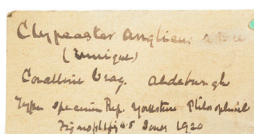 Clypeaster Anglicus
(Unique)
Coralline Crag. Aldeburgh
Type specimen Rep. Yorkshire Philosophical
1920